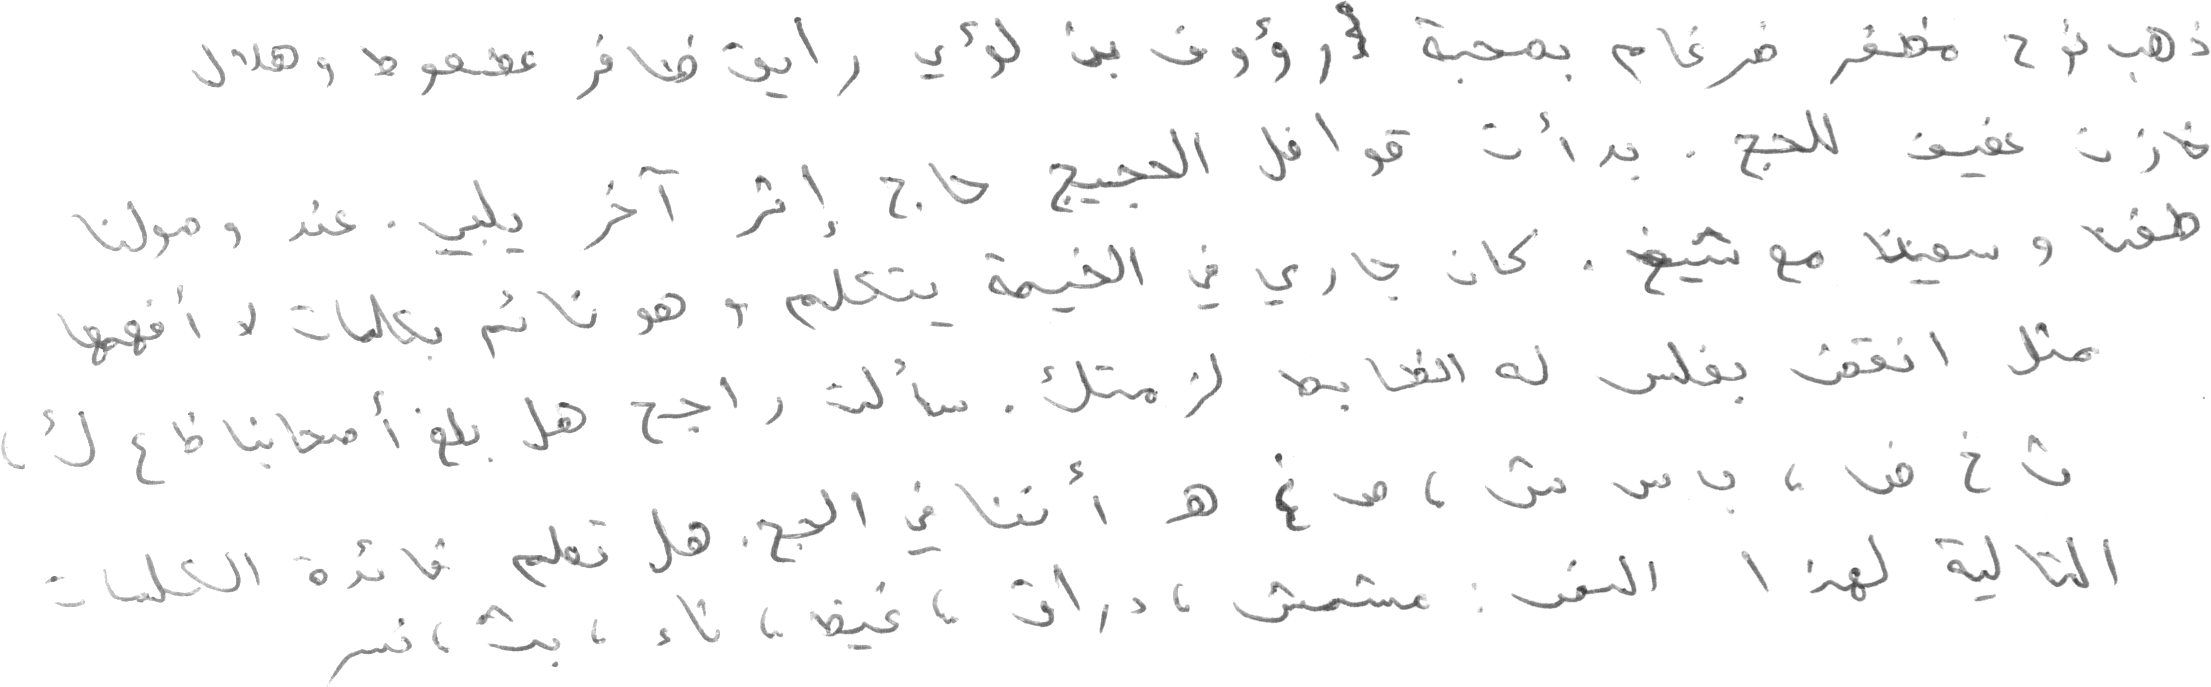 ذهب نوح مظفر ضرغام بصحبة رؤوف بن لؤي رايق ظافر عضعوط وهلال
خازن عفيف للحج . بدأت قوافل الحجيج حاج إثر آخر يلبي . عند وصولنا
طفنا وسعينا مع شيخ . كان جاري في الخيمة يتكلم وهو نائم بكلمات لا أفهمها
مثل انقض بفلس له الظابط لزمتك . سألت راجح هل بلغ أصحابنا ظ ع ك ،
ث خ ض ، ب س ش ، ص غ هـ أننا في الحج . هل تعلم فائدة الكلمات
التالية لهذا النص : مشمش ، دراق ، غيظ ، ناء ، بث ، نسر